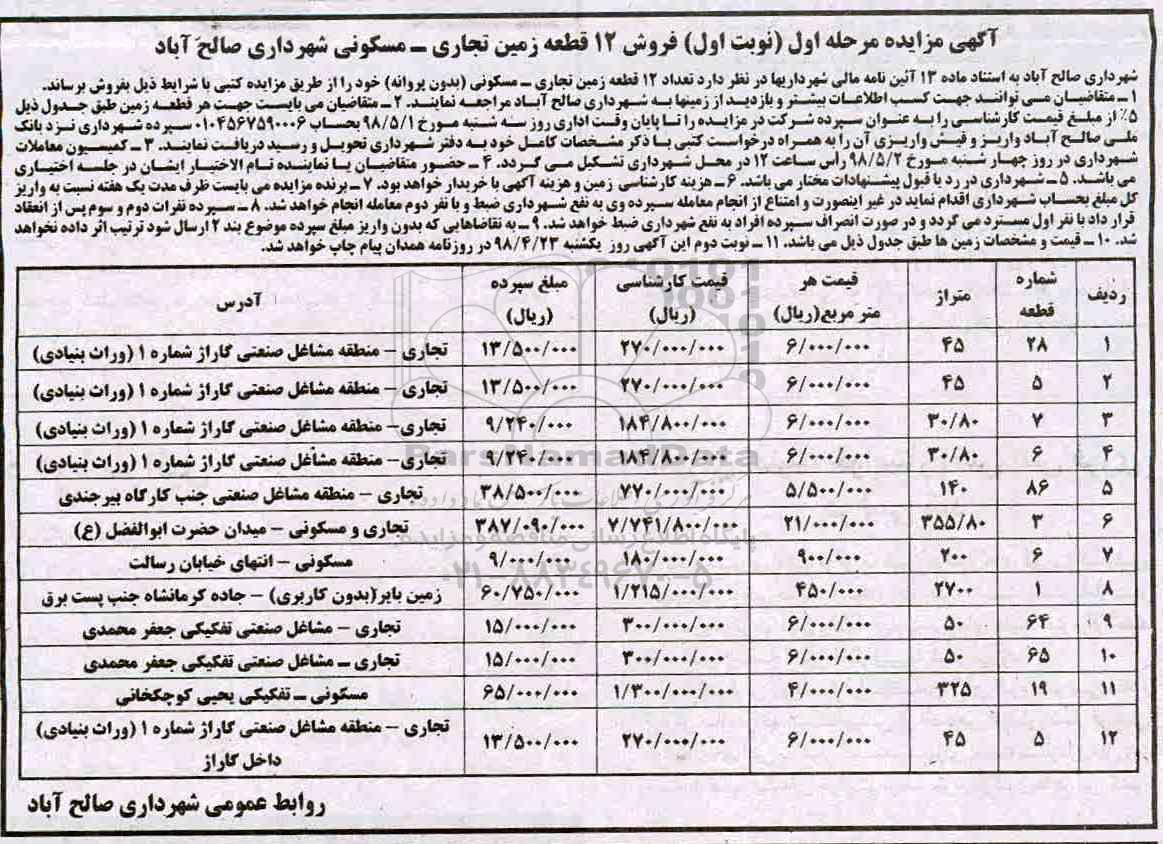 آگهی مزایده مرحله اول (نوبت اول) فروش ۱۲ قطعه زمین تجاری ــ مسکونی شهرداری صالح آباد
شهرداری صالح آباد به استناد ماده ۱۳ آئین نامه مالی شهرداریها در نظر دارد تعداد ۱۲ قطعه زمین تجاری ــ مسکونی (بدون پروانه) خود را از طریق مزایده کتبی با شرایط ذیل بفروش برساند.
۱ ــ متقاضیـان مـی تواننـد جهـت کسـب اطلاعـات بیشتـر و بازدیـد از زمینهـا بـه شهـرداری صالح آبـاد مراجعـه نماینـد. ۲ ــ متقاضیان می بایست جهت هر قطعـه زمین طبق جـدول ذیل
۵٪ از مبلغ قیمت کارشناسی را به عنوان سپرده شرکت در مزایده را تا پایان وقت اداری روز سه شنبه مورخ ۹۸/۵/۱ بحساب ۰۱۰۴۵۶۷۵۹۰۰۰۶ سپرده شهرداری نزد بانک
ملی صالح آباد واریز و فیش واریزی آن را به همراه درخواست کتبی با ذکر مشخصات کامل خود به دفتر شهرداری تحویل و رسید دریافت نمایند. ۳ ــ کمیسیون معاملات
شهرداری در روز چهار شنبه مورخ ۹۸/۵/۲ رأس ساعت ۱۲ در محل شهرداری تشکیل می گردد. ۴ ــ حضور متقاضیان یا نماینده تام الاختیار ایشان در جلسه اختیاری
می باشد. ۵ ــ شهرداری در رد یا قبول پیشنهادات مختار می باشد. ۶ ــ هزینه کارشناسی زمین و هزینه آگهی با خریدار خواهد بود. ۷ ــ برنده مزایده می بایست ظرف مدت یک هفته نسبت به واریز
کل مبلغ بحساب شهرداری اقدام نماید در غیر اینصورت و امتناع از انجام معامله سپرده وی به نفع شهرداری ضبط و با نفر دوم معامله انجام خواهد شد. ۸ ــ سپرده نفرات دوم و سوم پس از انعقاد
قرار داد با نفر اول مسترد می گردد و در صورت انصراف سپرده افراد به نفع شهرداری ضبط خواهد شد. ۹ ــ به تقاضاهایی که بدون واریز مبلغ سپرده موضوع بند ۲ ارسال شود ترتیب اثر داده نخواهد
شد. ۱۰ ــ قیمت و مشخصات زمین ها طبق جدول ذیل می باشد. ۱۱ ــ نوبت دوم این آگهی روز یکشنبه ۹۸/۴/۲۳ در روزنامه همدان پیام چاپ خواهد شد.
ردیف شماره قطعه متراژ قیمت هر متر مربع(ریال) قیمت کارشناسی (ریال) مبلغ سپرده (ریال) آدرس
۱ ۲۸ ۴۵ ۶/۰۰۰/۰۰۰ ۲۷۰/۰۰۰/۰۰۰ ۱۳/۵۰۰/۰۰۰ تجاری – منطقه مشاغل صنعتی گاراژ شماره ۱ (وراث بنیادی)
۲ ۵ ۴۵ ۶/۰۰۰/۰۰۰ ۲۷۰/۰۰۰/۰۰۰ ۱۳/۵۰۰/۰۰۰ تجاری – منطقه مشاغل صنعتی گاراژ شماره ۱ (وراث بنیادی)
۳ ۷ ۳۰/۸۰ ۶/۰۰۰/۰۰۰ ۱۸۴/۸۰۰/۰۰۰ ۹/۲۴۰/۰۰۰ تجاری- منطقه مشاغل صنعتی گاراژ شماره ۱ (وراث بنیادی)
۴ ۶ ۳۰/۸۰ ۶/۰۰۰/۰۰۰ ۱۸۴/۸۰۰/۰۰۰ ۹/۲۴۰/۰۰۰ تجاری– منطقه مشاغل صنعتی گاراژ شماره ۱ (وراث بنیادی)
۵ ۸۶ ۱۴۰ ۵/۵۰۰/۰۰۰ ۷۷۰/۰۰۰/۰۰۰ ۳۸/۵۰۰/۰۰۰ تجاری – منطقه مشاغل صنعتی جنب کارگاه بیرجندی
۶ ۳ ۳۵۵/۸۰ ۲۱/۰۰۰/۰۰۰ ۷/۷۴۱/۸۰۰/۰۰۰ ۳۸۷/۰۹۰/۰۰۰ تجاری و مسکونی – میدان حضرت ابوالفضل (ع)
۷ ۶ ۲۰۰ ۹۰۰/۰۰۰ ۱۸۰/۰۰۰/۰۰۰ ۹/۰۰۰/۰۰۰ مسکونی – انتهای خیابان رسالت
۸ ۱ ۲۷۰۰ ۴۵۰/۰۰۰ ۱/۲۱۵/۰۰۰/۰۰۰ ۶۰/۷۵۰/۰۰۰ زمین بایر(بدون کاربری) – جاده کرمانشاه جنب پست برق
۹ ۶۴ ۵۰ ۶/۰۰۰/۰۰۰ ۳۰۰/۰۰۰/۰۰۰ ۱۵/۰۰۰/۰۰۰ تجاری – مشاغل صنعتی تفکیکی جعفر محمدی
۱۰ ۶۵ ۵۰ ۶/۰۰۰/۰۰۰ ۳۰۰/۰۰۰/۰۰۰ ۱۵/۰۰۰/۰۰۰ تجاری ــ مشاغل صنعتی تفکیکی جعفر محمدی
۱۱ ۱۹ ۳۲۵ ۴/۰۰۰/۰۰۰ ۱/۳۰۰/۰۰۰/۰۰۰ ۶۵/۰۰۰/۰۰۰ مسکونی ــ تفکیکی یحیی کوچکخانی
۱۲ ۵ ۴۵ ۶/۰۰۰/۰۰۰ ۲۷۰/۰۰۰/۰۰۰ ۱۳/۵۰۰/۰۰۰ تجاری – منطقه مشاغل صنعتی گاراژ شماره ۱ (وراث بنیادی) داخل گاراژ
روابط عمومی شهرداری صالح آباد
ParsNamadData
پایگاه اطلاع رسانی مناقصه و مزایده
۰۲۱-۸۸۳۴۹۶۷۰-۵